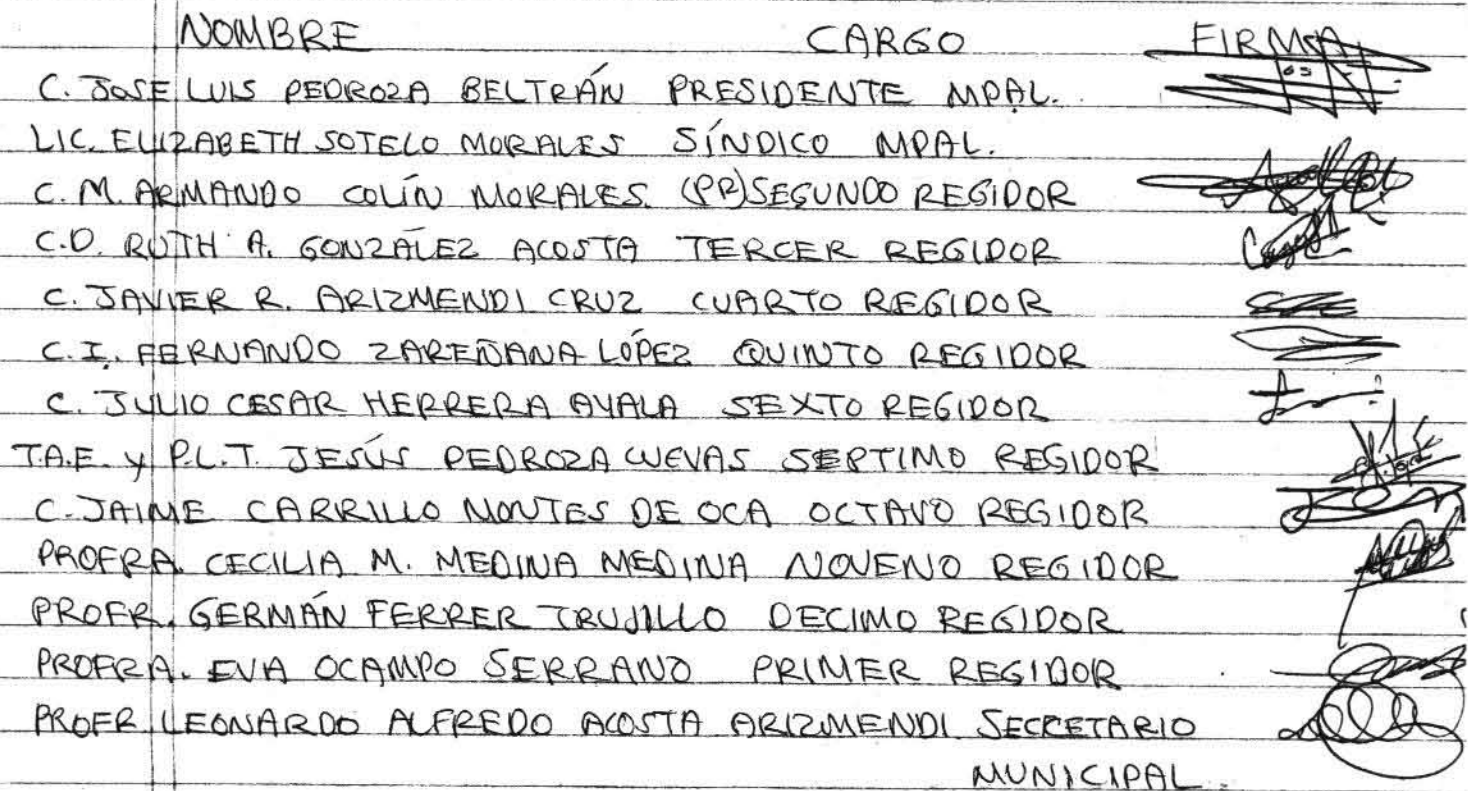 NOMBRE CARGO FIRMA
C. JOSE LUIS PEDROZA BELTRÁN PRESIDENTE MPAL.
LIC. ELIZABETH SOTELO MORALES SÍNDICO MPAL.
C. M. ARMANDO COLÍN MORALES. (PR) SEGUNDO REGIDOR
C.D. RUTH A. GONZÁLEZ ACOSTA TERCER REGIDOR
C. JAVIER R. ARIZMENDI CRUZ CUARTO REGIDOR
C.I. FERNANDO ZAREÑANA LÓPEZ QUINTO REGIDOR
C. JULIO CESAR HERRERA AYALA SEXTO REGIDOR
T.A.E. y P.L.T. JESÚS PEDROZA CUEVAS SEPTIMO REGIDOR
C. JAIME CARRILLO MONTES DE OCA OCTAVO REGIDOR
PROFRA. CECILIA M. MEDINA MEDINA NOVENO REGIDOR
PROFR. GERMÁN FERRER TRUJILLO DECIMO REGIDOR
PROFRA. EVA OCAMPO SERRANO PRIMER REGIDOR
PROFR. LEONARDO ALFREDO ACOSTA ARIZMENDI SECRETARIO
MUNICIPAL.